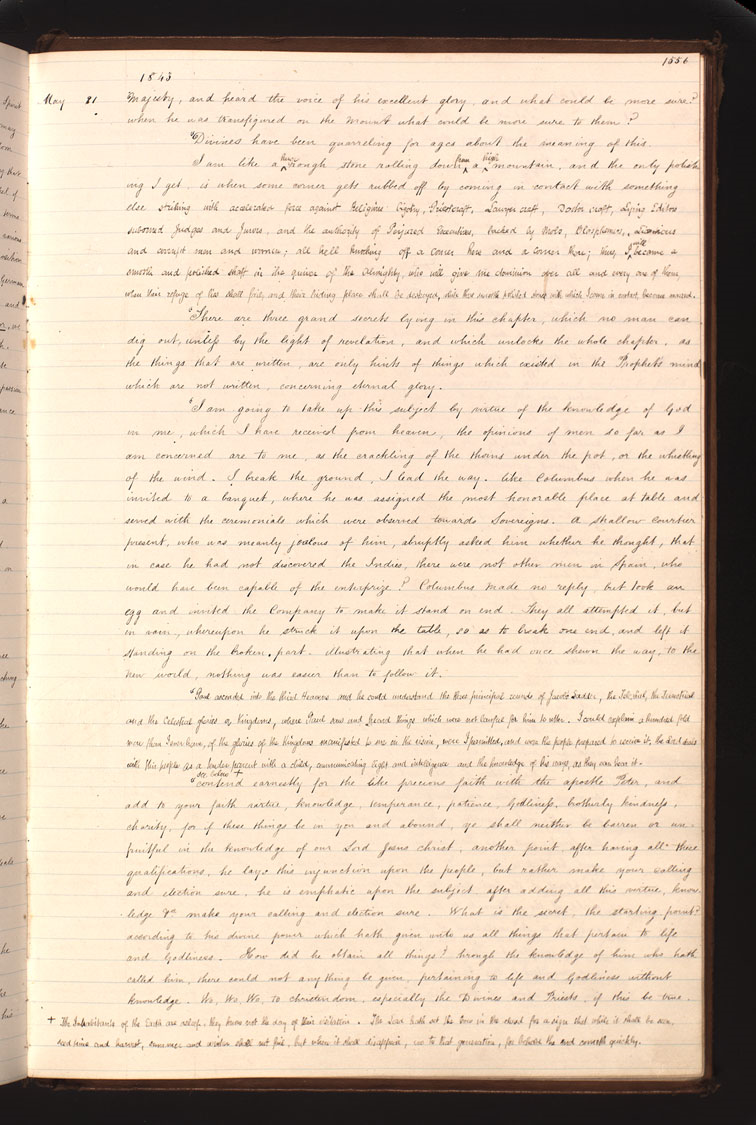 1556
1843
May 21.
Majesty, and heard the voice of his excellent glory, and what could be more sure?
when he was transfigured on the mount what could be more sure to them?
Divines have been quarreling for ages about the meaning of this.
I am like a huge rough stone rolling down from a high mountain, and the only polish-
ing I get, is when some corner gets rubbed off by coming in contact with something
else striking with accelerated force against Religious bigotry, Priestcraft, Lawyer craft, Doctor craft, Lying Editors
suborned Judges and Jurors, and the authority of Perjured Executives, backed by Mobs, Blasphemers, Licentious
and corrupt men and women; all hell knocking off a corner here and a corner there; thus, I will become a
smooth and polished shaft in the quiver of the Almighty, who will give me dominion over all and every one of them,
when their refuge of lies shall fail, and their hiding place shall be destroyed, while these smooth polished stones with which I come in contact, become marred.
There are three grand secrets lying in this chapter, which no man can
dig out, unless by the light of revelation, and which unlocks the whole chapter, as
the things that are written, are only hints of things which existed in the Prophet's mind
which are not written, concerning eternal glory.
I am going to take up this subject by virtue of the knowledge of God
in me, which I have received from heaven, the opinions of men so far as I
am concerned are to me, as the crackling of the thorns under the pot, or the whistling
of the wind. I break the ground, I lead the way. like Columbus when he was
invited to a banquet, where he was assigned the most honorable place at table and
served with the ceremonials which were observed towards Sovereigns. A shallow courtier
present, who was meanly jealous of him, abruptly asked him whether he thought, that
in case he had not discovered the Indies, there were not other men in Spain, who
would have been capable of the enterprize? Columbus made no reply, but took an
egg and invited the Company to make it stand on end. They all attempted it, but
in vain, whereupon he struck it upon the table, so as to break one end, and left it
standing on the broken part. illustrating that when he had once shewn the way, to the
New world, nothing was easier than to follow it.
Paul ascended into the third Heavens and he could understand the three principal rounds of Jacob's Ladder, the Telestial, the Terrestrial
and the Celestial glories or kingdoms, where Paul saw and heard things which were not lawful for him to utter. I could explain a hundred fold
more than I ever have, of the glories of the kingdoms manifested to me in the vision, were I permitted, and were the people prepared to receive it; the Lord deals
with this people as a tender parent with a child, communicating light and intelligence and the knowledge of his ways, as they can bear it.
see below +
contend earnestly for the like precious faith with the apostle Peter, and
add to your faith virtue, knowledge, temperance, patience, Godliness, brotherly kindness,
charity, for if these things be in you and abound, ye shall neither be barren or un-
fruitful in the knowledge of our Lord Jesus Christ, another point, after having all these
qualifications, he lays this injunction upon the people, but rather make your calling
and election sure. he is emphatic upon the subject, after adding all this virtue, know-
ledge &c make your calling and election sure. What is the secret, the starting point?
according to his divine power which hath given unto us all things that pertain to life
and Godliness. How did he obtain all things? through the knowledge of him who hath
called him, there could not anything be given, pertaining to life and Godliness without
knowledge. Wo, Wo, Wo, to christendom, especially the Divines and Priests, if this be true.
+ The Inhabitants of the Earth are asleep, they know not the day of their visitation. The Lord hath set the bow in the cloud for a sign that while it shall be seen,
seed time and harvest, summer and winter shall not fail, but when it shall disappear, woe to that generation, for behold the end cometh quickly.